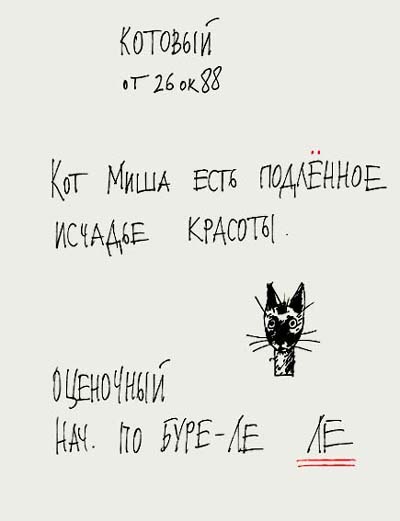 КОТОВЫЙ
ОТ 26 ОК 88
КОТ МИША ЕСТЬ ПОДЛЁННОЕ
ИСЧАДЬЕ КРАСОТЫ.
ОЦЕНОЧНЫЙ
НАЧ. ПО БУРЕ-ЛЕ ЛЕ